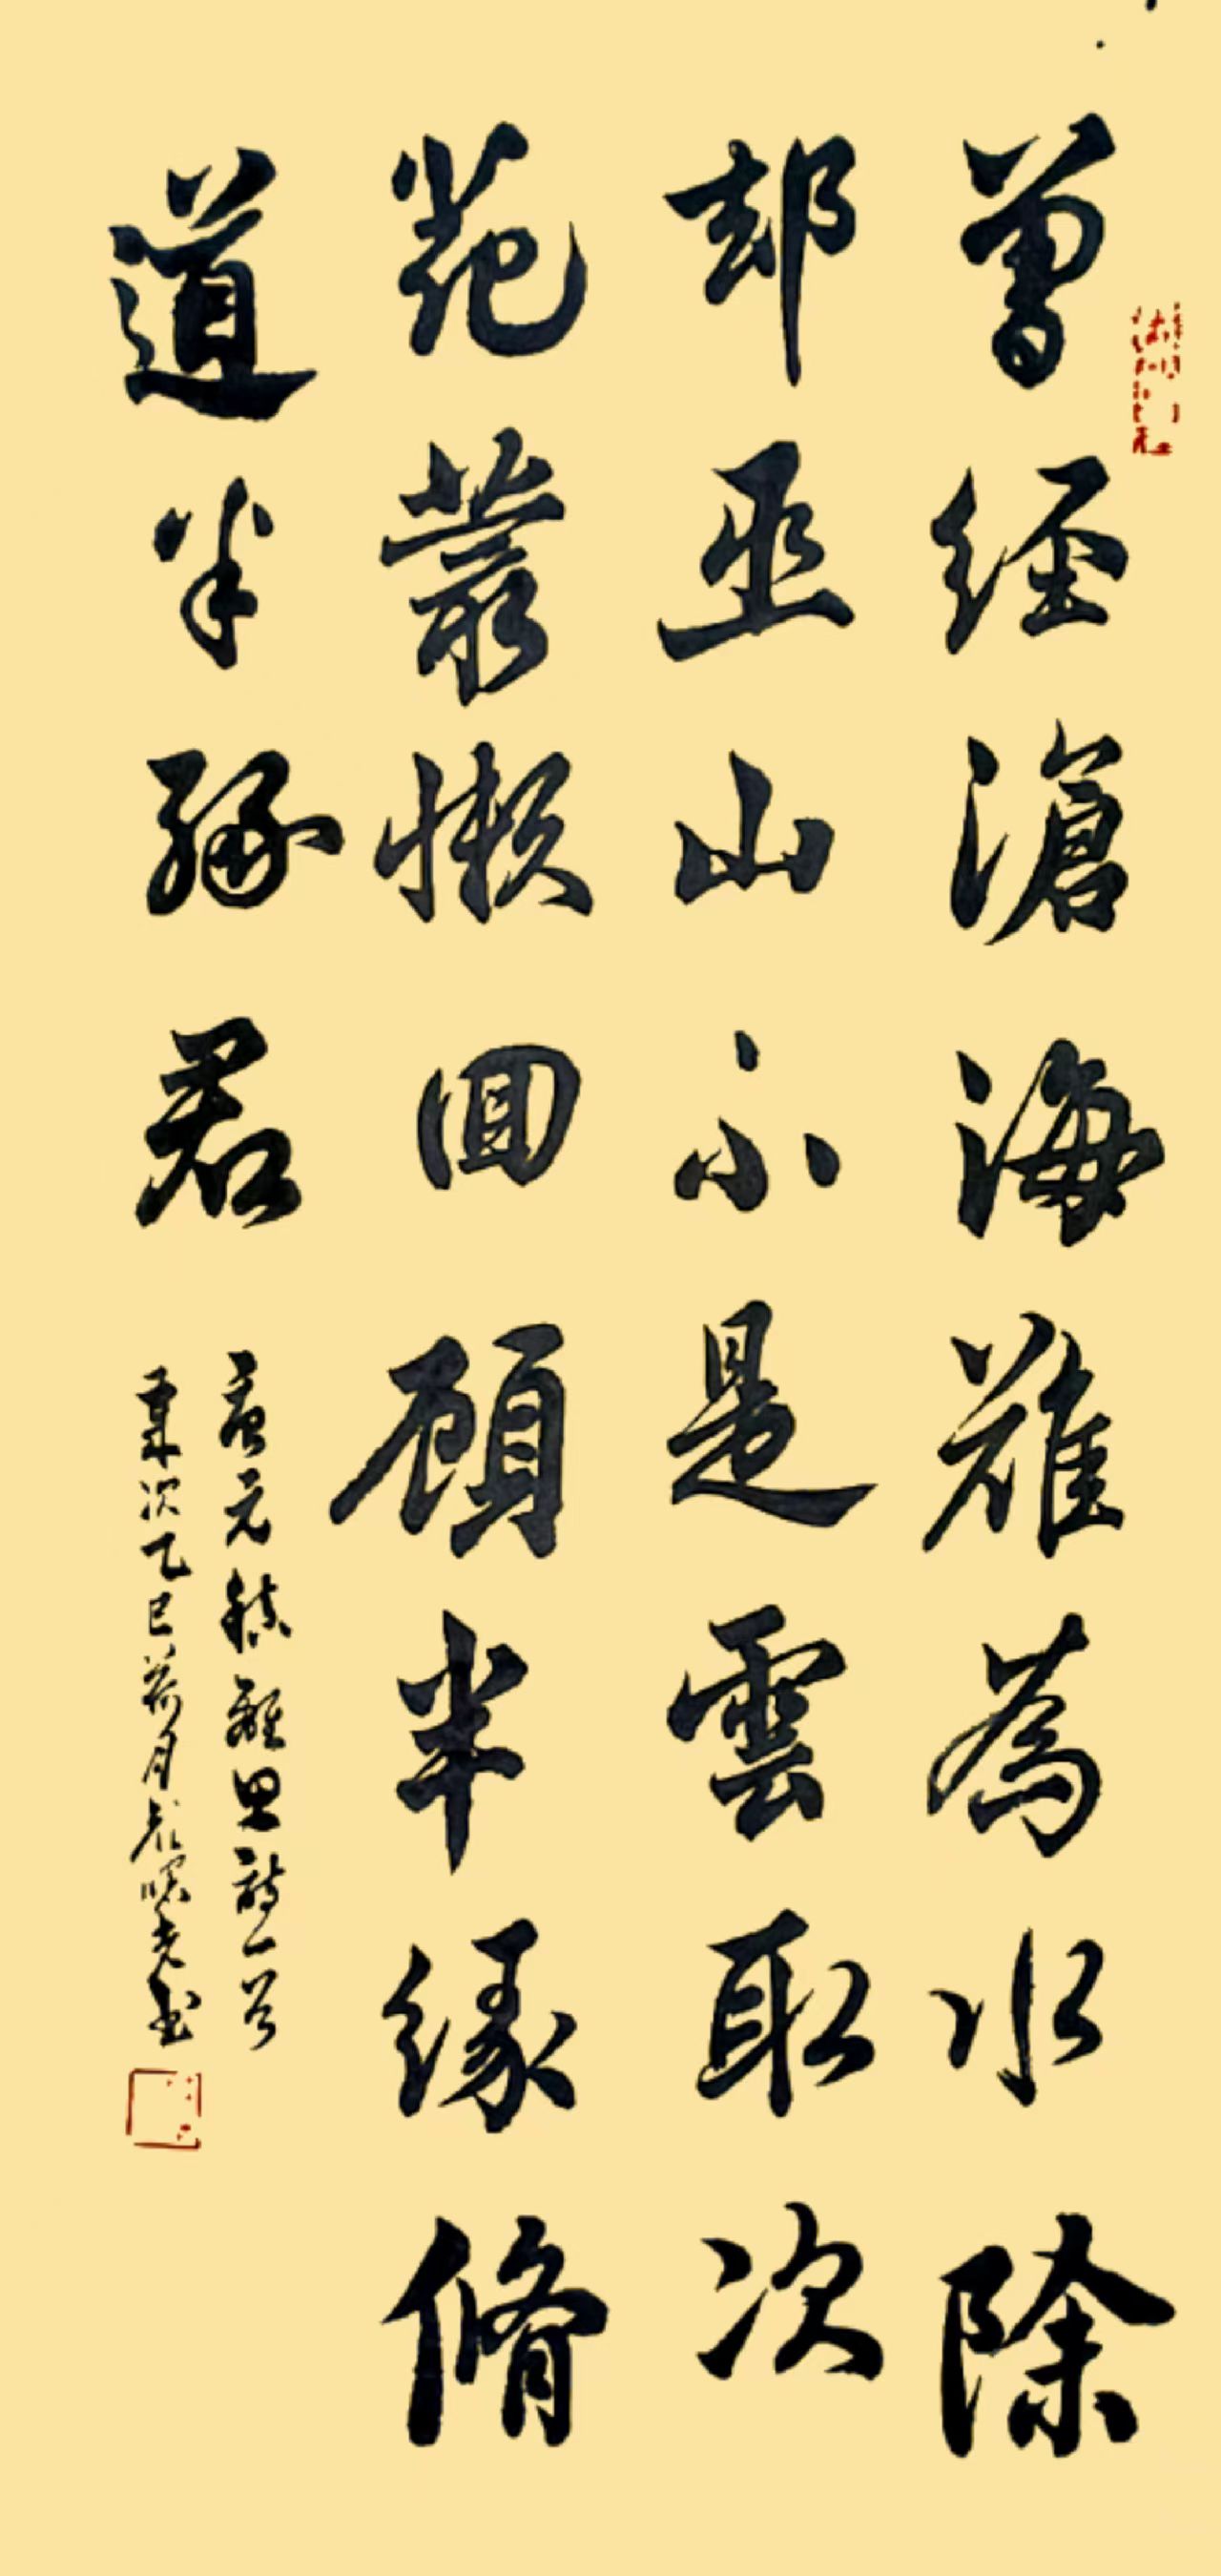 曾經滄海難為水除
却巫山不是雲取次
花叢懶回顧半緣脩
道半緣君
唐元稹離思詩一首
歲次乙巳荷月